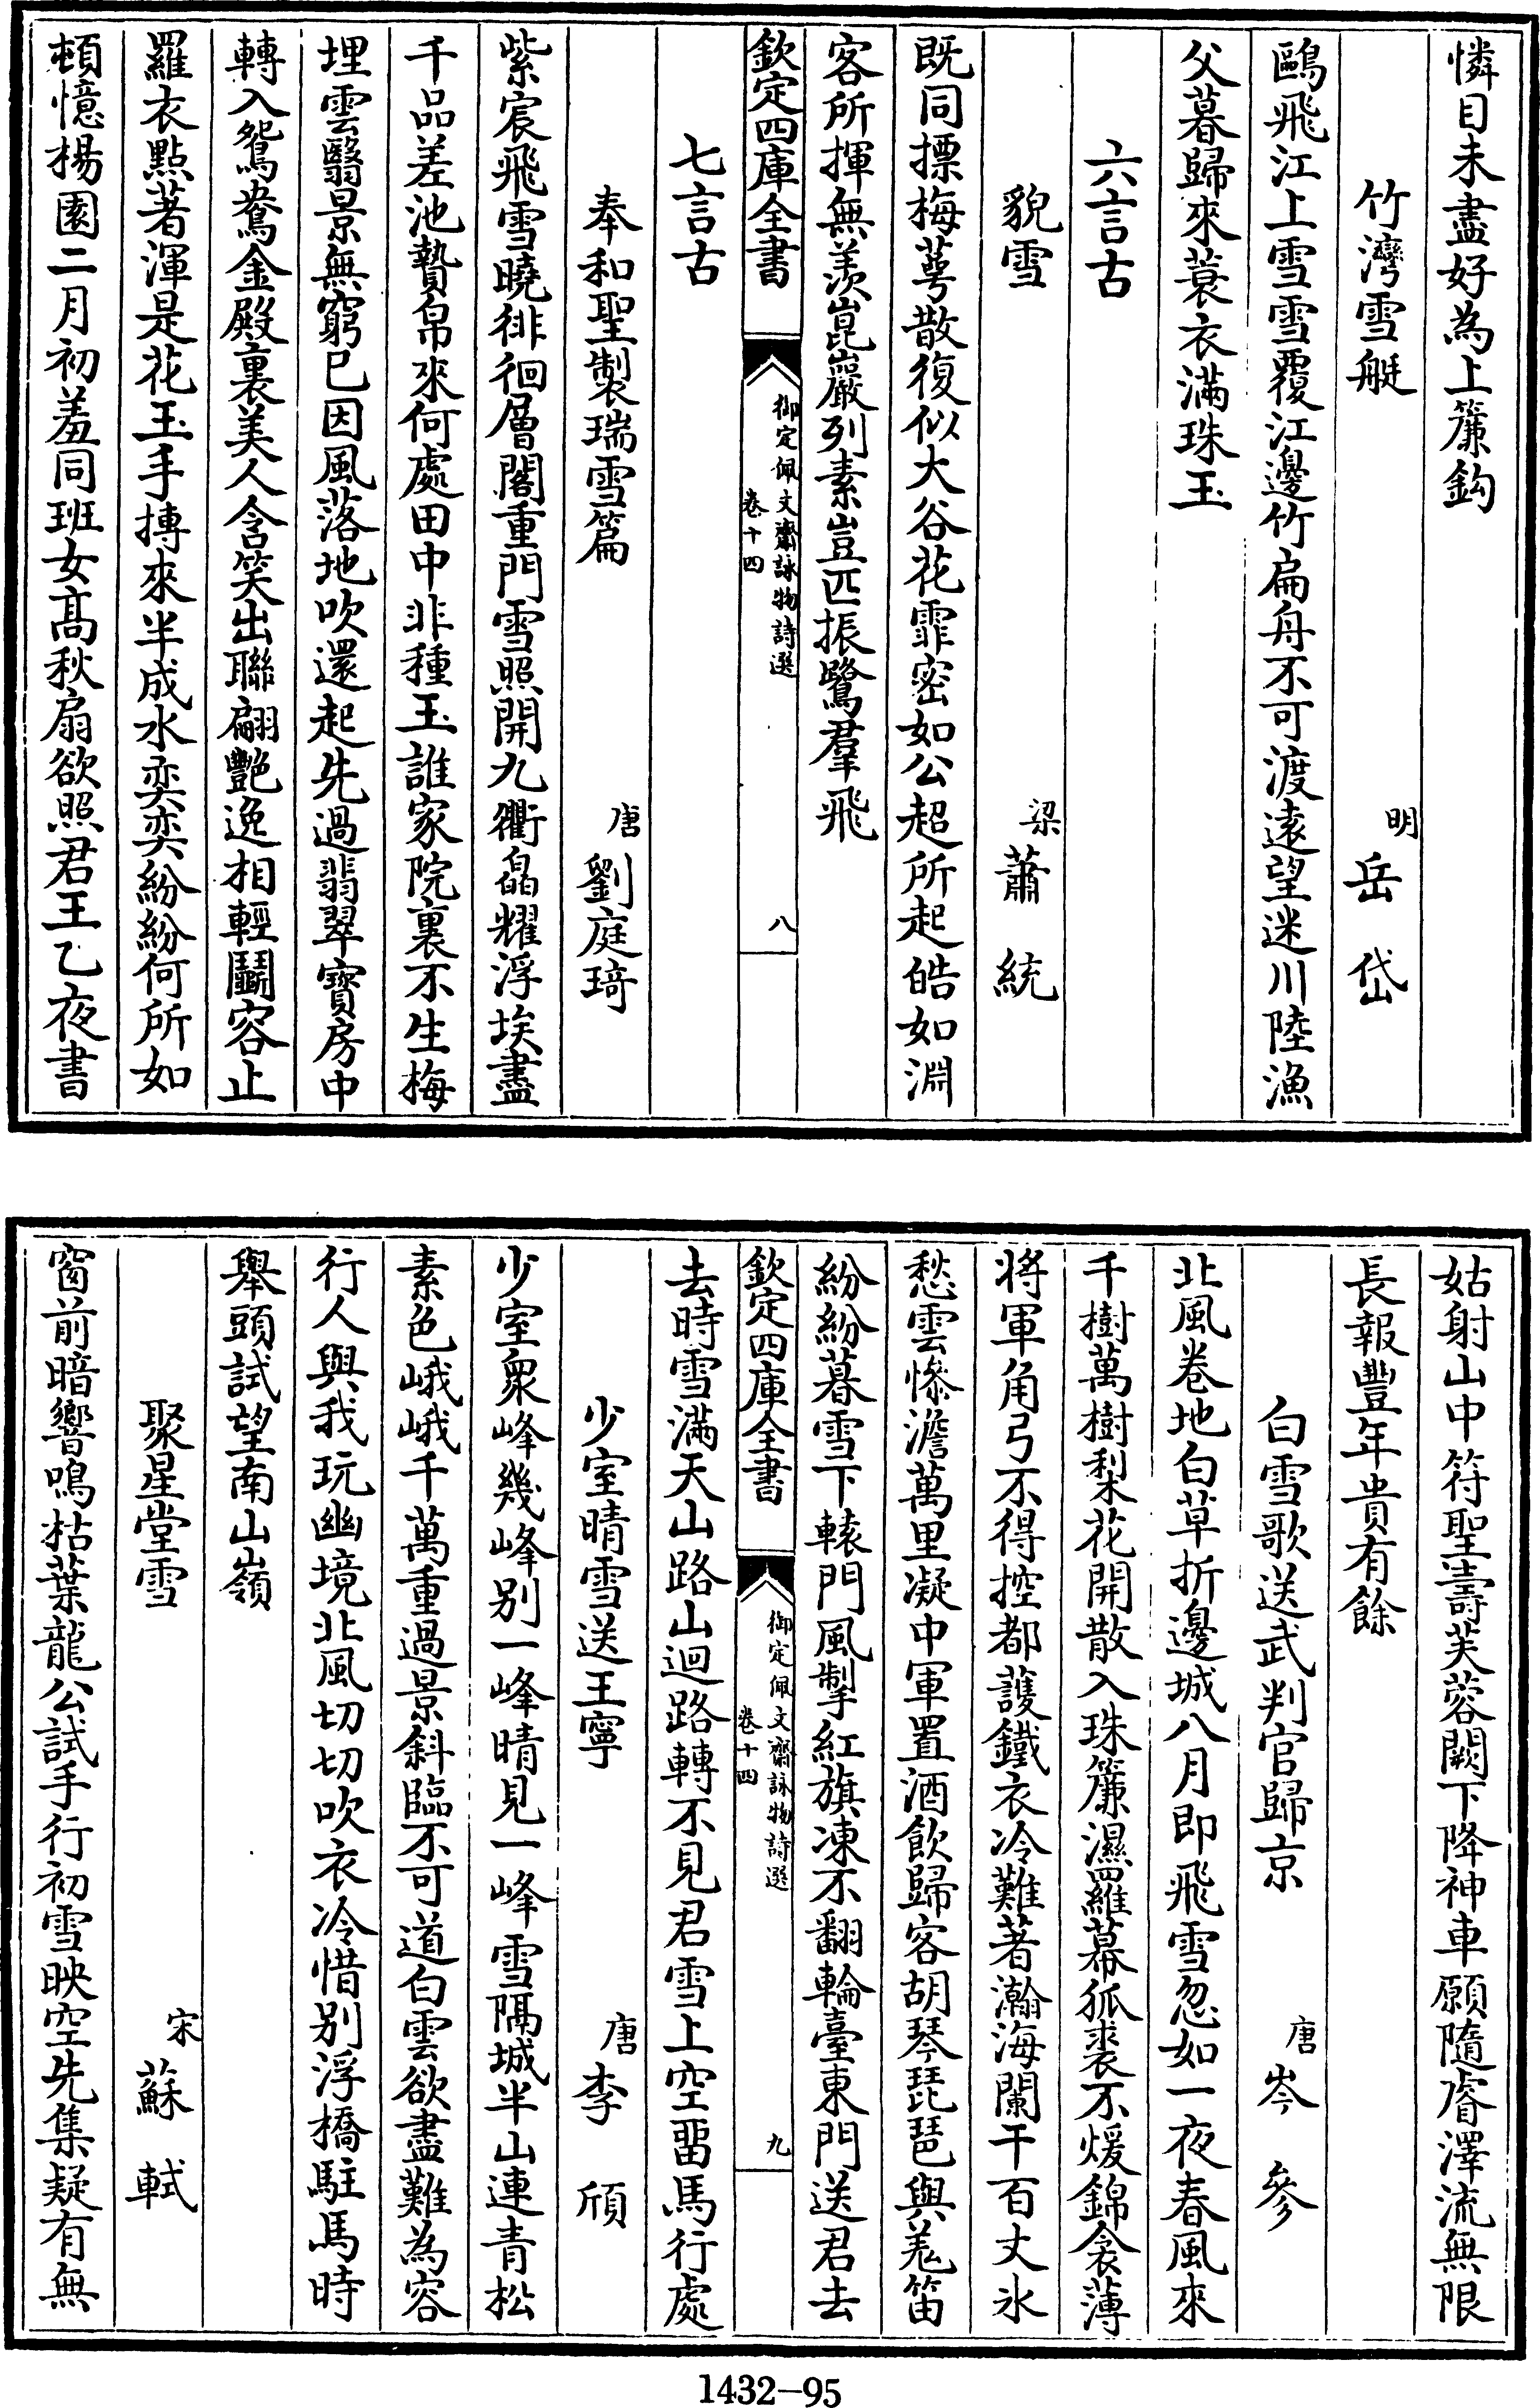 憐目未盡好為上簾鈎
竹灣雪艇
明
岳岱
鷗飛江上雪雪覆江邊竹扁舟不可渡遠望迷川陸漁
父暮歸來蓑衣滿珠玉
六言古
貌雪
梁
蕭統
既同摽梅蕚散復似大谷花霏密如公超所起皓如淵
客所揮無羨崑巖列素豈匹振鷺羣飛
欽定四庫全書
御定佩文齋詠物詩選
卷十四
八
七言古
奉和聖製瑞雪篇
唐
劉庭琦
紫宸飛雪曉徘徊層閣重門雪照開九衢皛耀浮埃盡
千品差池贄帛來何處田中非種玉誰家院裏不生梅
埋雲翳景無窮已因風落地吹還起先過翡翠寶房中
轉入鴛鴦金殿裏美人含笑出聯翩艷逸相輕鬬容止
羅衣點著渾是花玉手摶來半成水奕奕紛紛何所如
頓憶楊園二月初羞同班女髙秋扇欲照君王乙夜書
姑射山中符聖壽芙蓉闕下降神車願隨睿澤流無限
長報豐年貴有餘
白雪歌送武判官歸京
唐
岑參
北風卷地白草折邊城八月即飛雪忽如一夜春風來
千樹萬樹梨花開散入珠簾濕羅幕狐裘不煖錦衾薄
將軍角弓不得控都護鐵衣冷難著瀚海闌干百丈氷
愁雲慘澹萬里凝中軍置酒飲歸客胡琴琵琶與羗笛
紛紛暮雪下轅門風掣紅旗凍不翻輪臺東門送君去
欽定四庫全書
御定佩文齋詠物詩選
卷十四
九
去時雪滿天山路山迴路轉不見君雪上空留馬行處
少室晴雪送王寧
唐
李頎
少室衆峰幾峰别一峰晴見一峰雪隔城半山連青松
素色峨峨千萬重過景斜臨不可道白雲欲盡難為容
行人與我玩幽境北風切切吹衣冷惜别浮橋駐馬時
舉頭試望南山嶺
聚星堂雪
宋
蘇軾
窗前暗響鳴枯葉龍公試手行初雪映空先集疑有無
1432—95